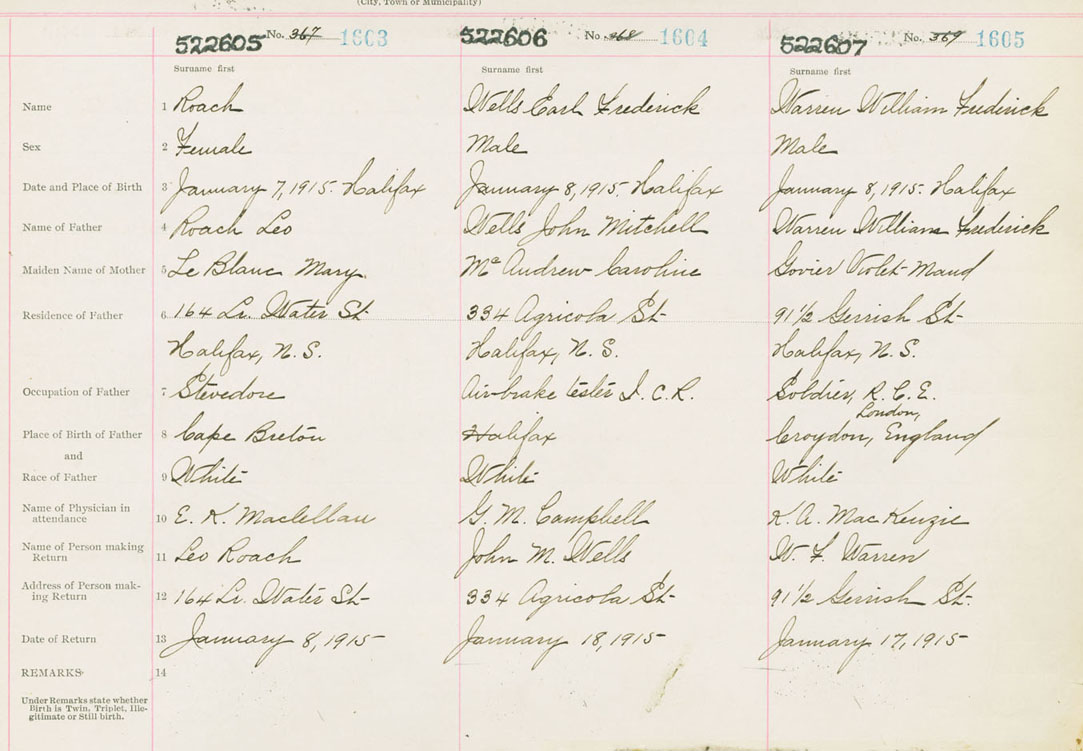 (City, Town or Municipality)
522605 No. 367 1603 522606 No. 368 1604 522607 No. 369 1605
Surname first Surname first Surname first
Name 1 Roach Wells Earl Frederick Warren William Frederick
Sex 2 Female Male Male
Date and Place of Birth 3 January 7, 1915. Halifax January 8, 1915. Halifax January 8, 1915. Halifax
Name of Father 4 Roach Leo Wells John Mitchell Warren William Frederick
Maiden Name of Mother 5 Le Blanc Mary. Mc Andrew Caroline Govier Violet Maud
Residence of Father 6 164 Lr. Water St 334 Agricola St 91 1/2 Gerrish St
Halifax, N. S. Halifax, N. S. Halifax, N. S.
Occupation of Father 7 Stevedore Air-brake tester I. C. R. Soldier, R. C. E.
London,
Place of Birth of Father 8 Cape Breton Halifax Croydon, England
and
Race of Father 9 White White White
Name of Physician in
attendance 10 E. K. Maclellan G. M. Campbell K. A. Mac Kenzie
Name of Person making
Return 11 Leo Roach John M. Wells W. F. Warren
Address of Person mak-
ing Return 12 164 Lr. Water St 334 Agricola St 91 1/2 Gerrish St.
Date of Return 13 January 8, 1915 January 18, 1915 January 17, 1915
REMARKS 14
Under Remarks state whether
Birth is Twin, Triplet, Ille-
gitimate or Still birth.